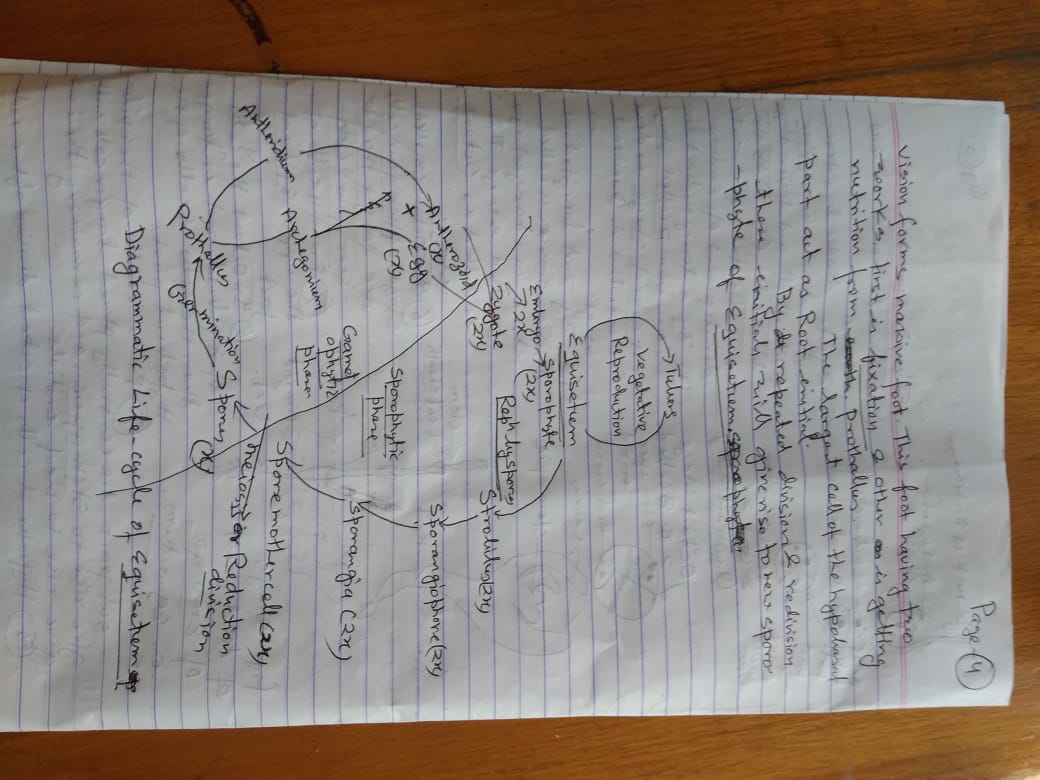 Page-(4)
vision forms massive foot. This foot having two
works first is fixation & other is getting
nutrition from Prothallus.
The largest cell of the hypobasal
part act as Root initial.
By repeated division & redivision
these initials will give rise to new sporo
-phyte of Equisetum
→Tubors
Vegetative
Reproduction
Equisetum
Embryo → Sporophyte
2x (2x)
Zygote
(2x)
Antherozoid
(x)
+
Egg
(x)
Reph by spores
Strobilus(2x)
Sporangiophore(2x)
Sporangia (2x)
Sporemothercell(2x)
Meiosis or Reduction
division
Sporophytic
phase
Gamet
ophytic
phase
Antheridium
Archegonium
Prothallus
Germination
Spores
(x)
Diagrammatic Life-cycle of Equisetum